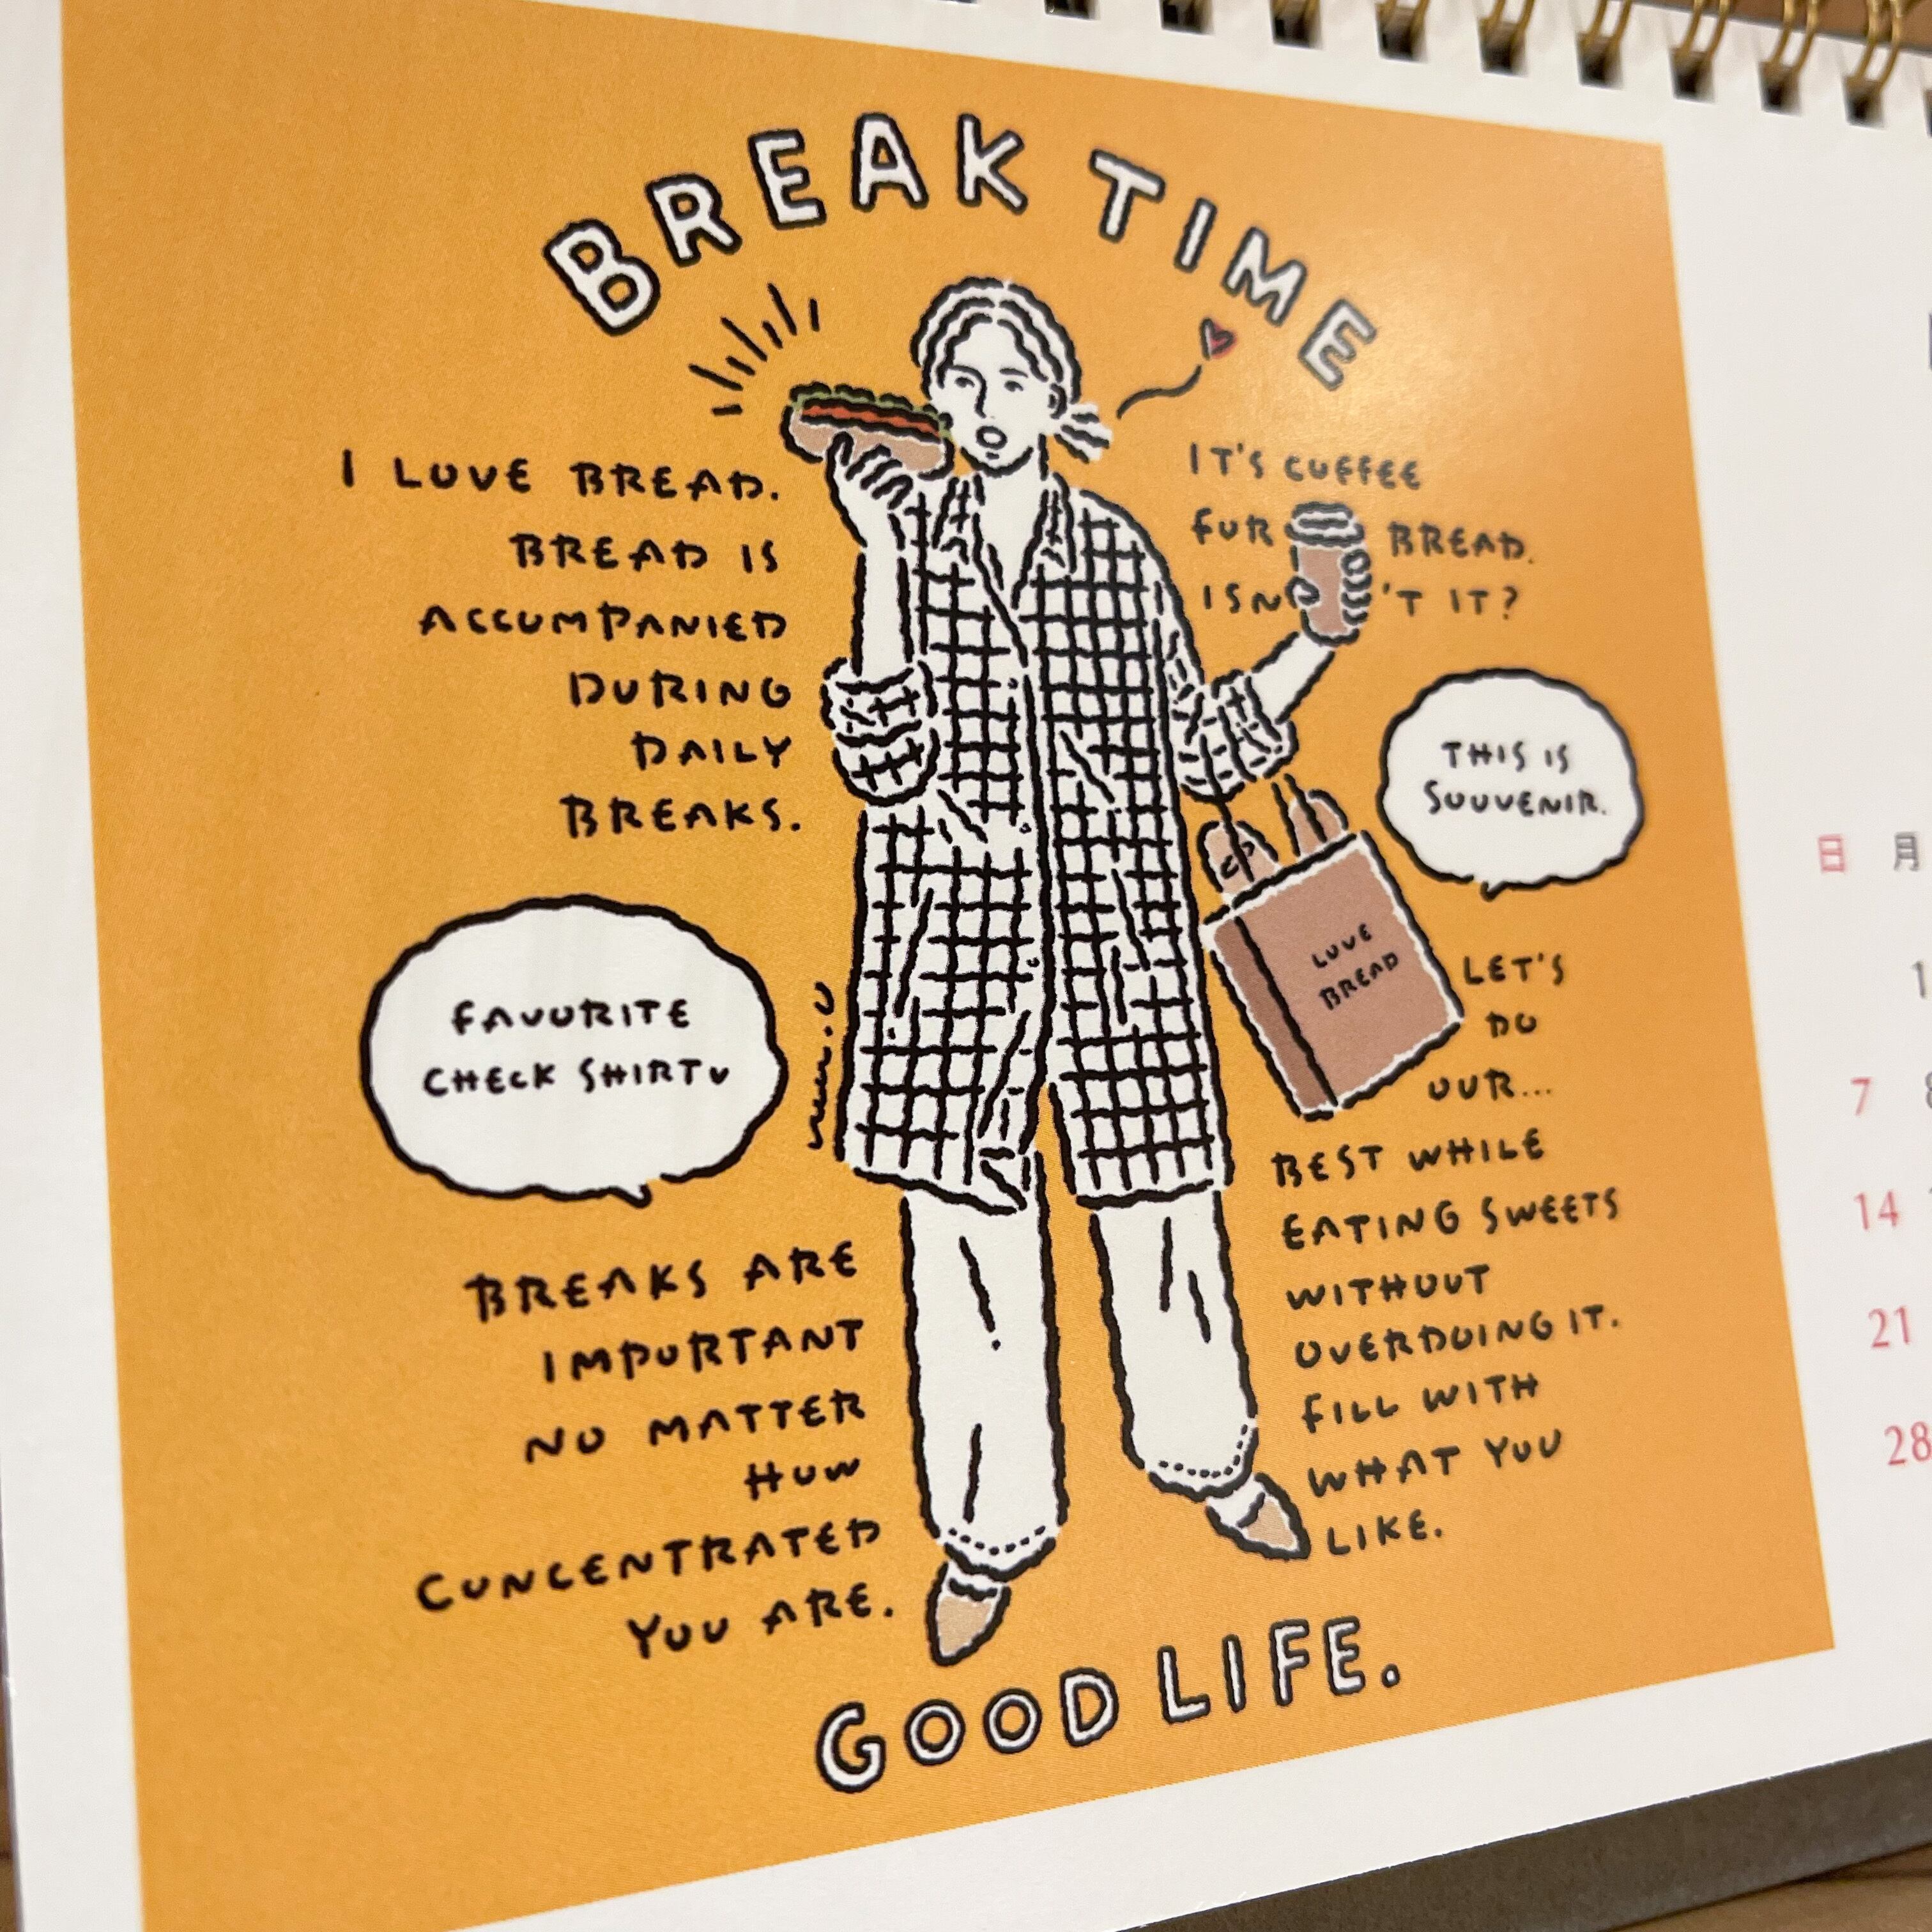 BREAK TIME
I LOVE BREAD.
BREAD IS
ACCOMPANIED
DURING
DAILY
BREAKS.
IT'S COFFEE
FOR BREAD.
ISN'T IT?
THIS IS
SOUVENIR.
LOVE
BREAD
FAVORITE
CHECK SHIRT
LET'S
DO
OUR...
BEST WHILE
EATING SWEETS
WITHOUT
OVERDOING IT.
FILL WITH
WHAT YOU
LIKE.
BREAKS ARE
IMPORTANT
NO MATTER
HOW
CONCENTRATED
YOU ARE.
GOOD LIFE.
日 月
1
7 8
14
21
28